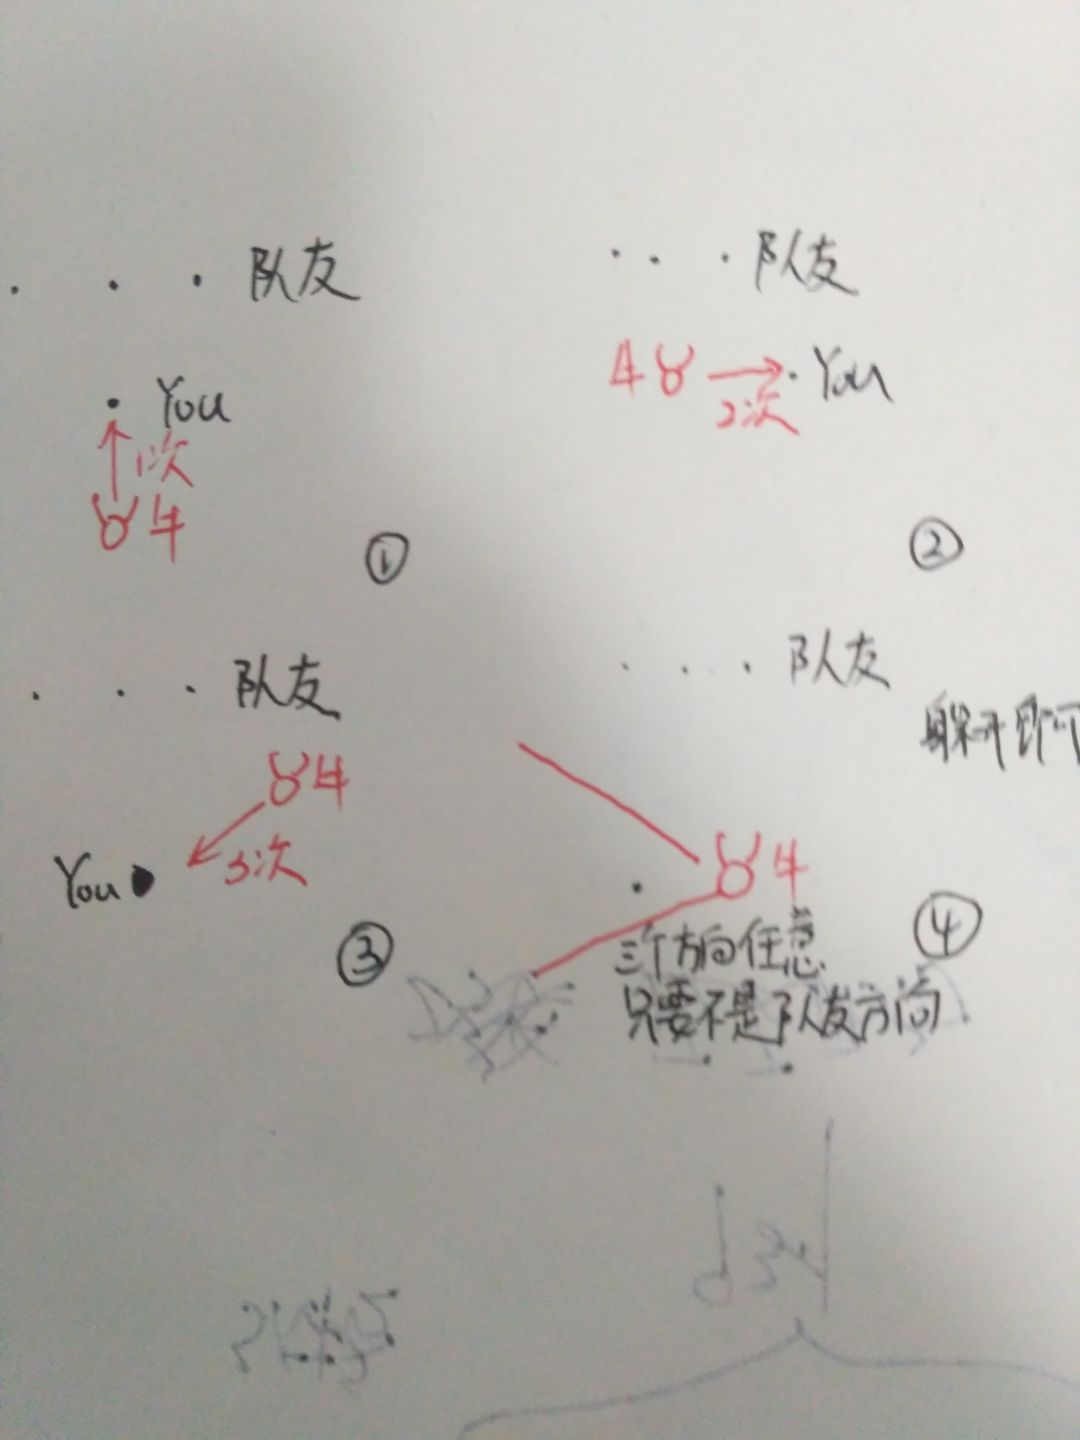 队友
You
1次
牛
①
队友
牛
You
2次
②
队友
牛
You
3次
③
队友
躲开即可
牛
三个方向任意
只要不是队友方向
④